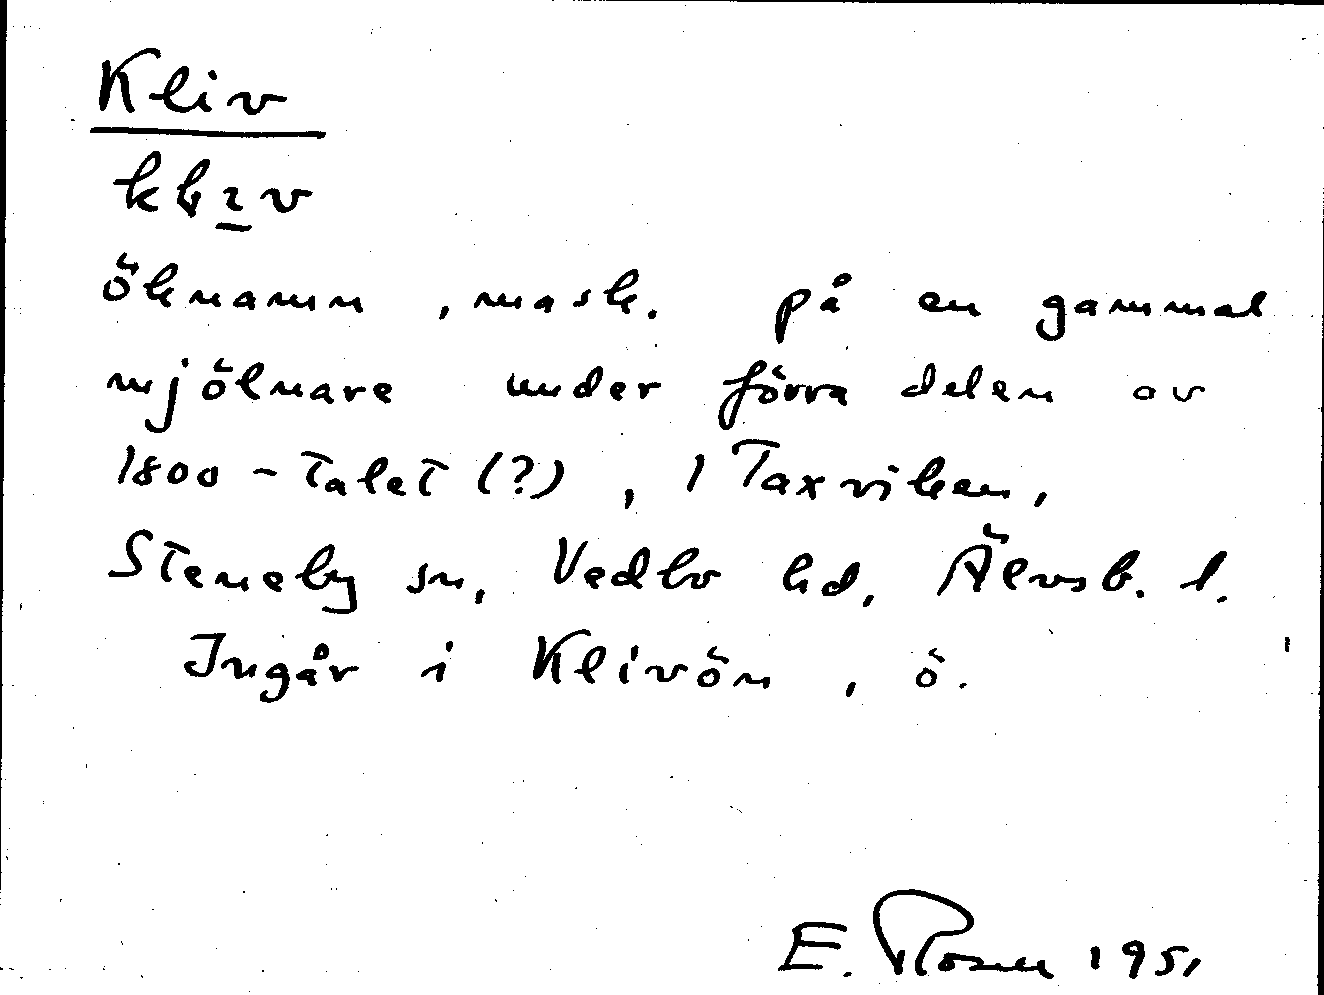 Kliv
klɩv
öknamn, mask. på en gammal
mjölnare under förra delen av
1800-talet (?), i Taxviken,
Steneby sn, Vedbo hd, Älvsb. l.
Ingår i Klivön, ö.
E. Rosen 1951